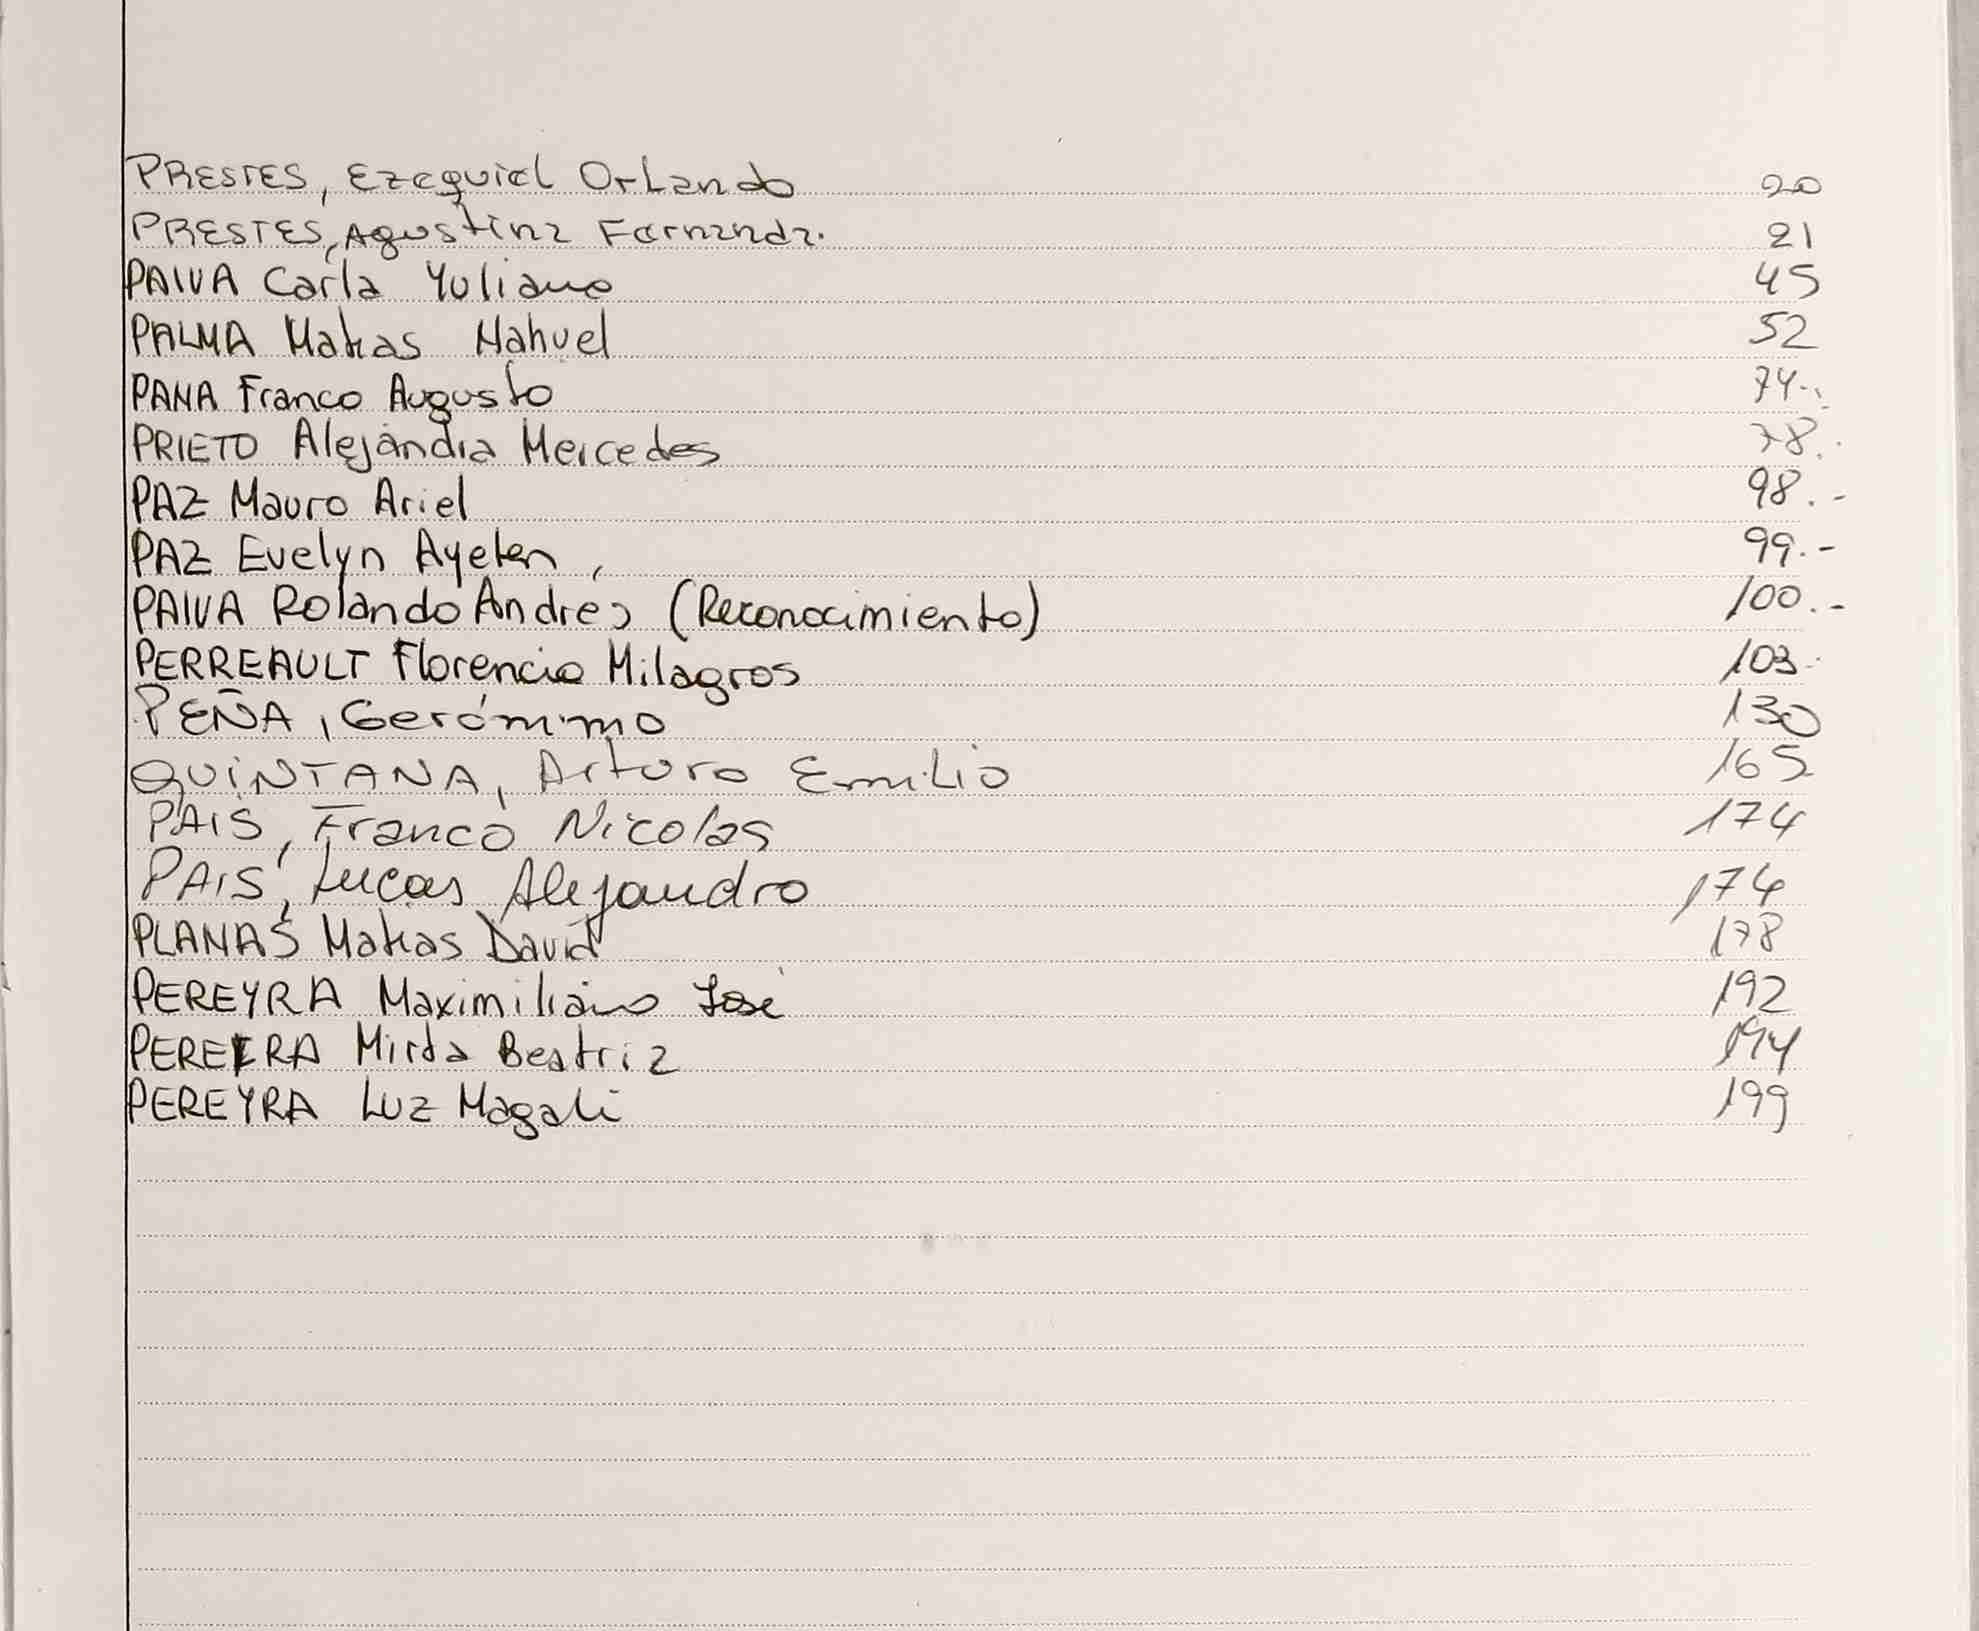 PRESTES, Ezequiel Orlando 20
PRESTES, Agustina Fernanda. 21
PAIVA Carla Yuliana 45
PALMA Matias Nahuel 52
PANA Franco Augusto 74.-
PRIETO Alejandra Mercedes 78.-
PAZ Mauro Ariel 98.-
PAZ Evelyn Ayelen, 99.-
PAIVA Rolando Andres (Reconocimiento) 100.-
PERREAULT Florencia Milagros 103.-
PEÑA, Gerónimo 130
QUINTANA, Arturo Emilio 165
PAIS, Franco Nicolas 174
PAIS, Lucas Alejandro 174
PLANAS Matias David 178
PEREYRA Maximiliano José 192
PEREIRA Mirta Beatriz 194
PEREYRA Luz Magali 199